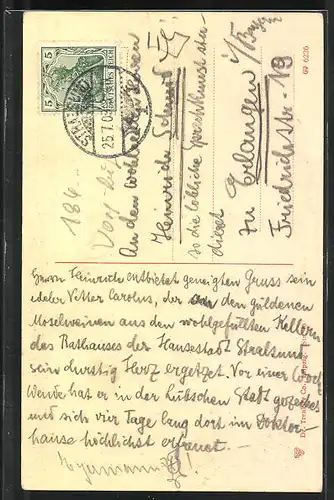 5
5
DEUTSCHES REICH
STRALSUND
25.7.09
An den wohledlen Herren
Heinrich Schmidt
so die löbliche Sprachkunst stu-
diert
zu Erlangen i/Bayern
Friedrichstr. 19
69 6226
184
Herrn Heinrich entbietet geneigten Gruss sein
edeler Vetter Carolus, der an den güldenen
Moselweinen aus den wohlgefüllten Kellern
des Rathauses der Hansestadt Stralsund
sein durstig Herz ergetzet. Vor einer
Wende hat er in der hübschen Stadt gezechet
und sich vier Tage lang dort im Doktor-
hause höchlichst erfreuet.
Dr. Trenkler Co. Leipzig